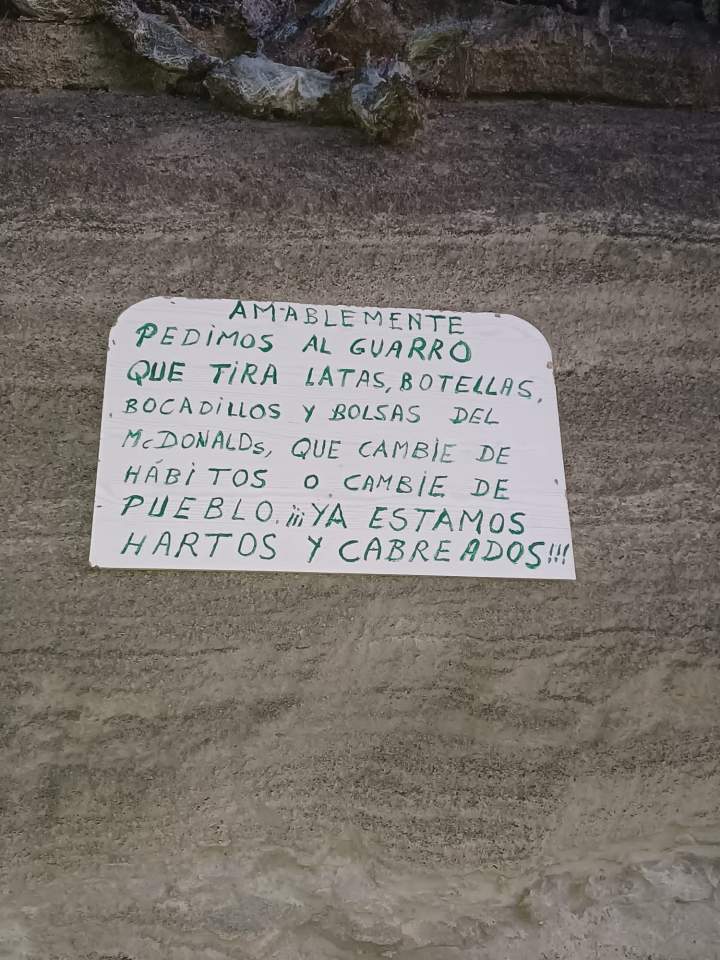 AMABLEMENTE
PEDIMOS AL GUARRO
QUE TIRA LATAS, BOTELLAS,
BOCADILLOS Y BOLSAS DEL
McDONALDs, QUE CAMBIE DE
HÁBITOS O CAMBIE DE
PUEBLO. ¡¡¡YA ESTAMOS
HARTOS Y CABREADOS!!!